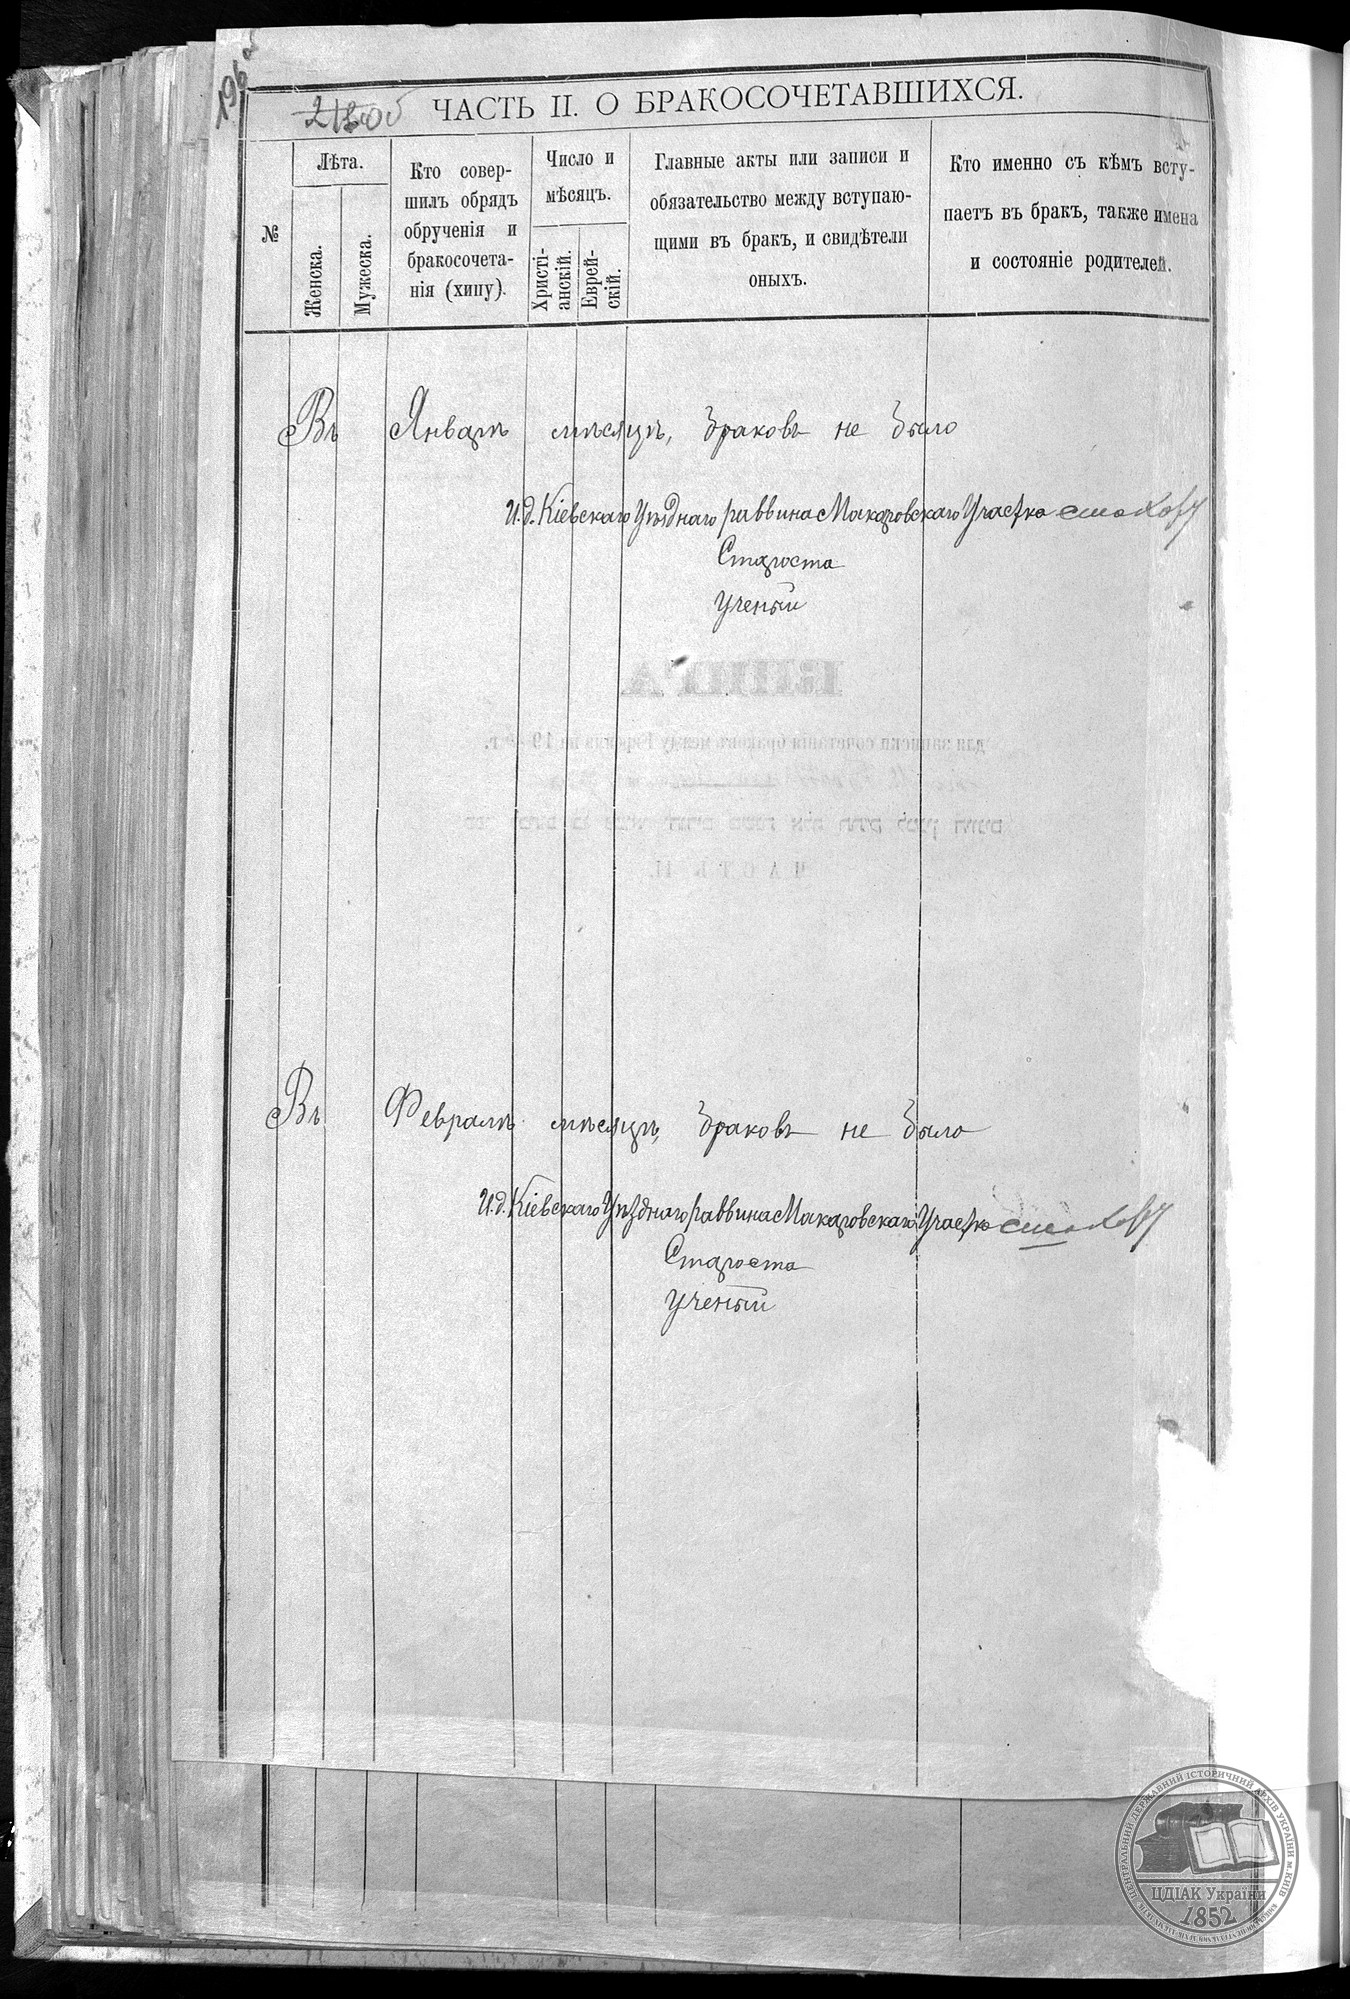 196
ЧАСТЬ II. О БРАКОСОЧЕТАВШИХСЯ.
№
Лѣта.
Женска.
Мужеска.
Кто совер-
шилъ обрядъ
обрученія и
бракосочета-
нія (хипу).
Число и
мѣсяцъ.
Христі-
анскій.
Еврей-
скій.
Главные акты или записи и
обязательство между вступаю-
щими въ бракъ, и свидѣтели
оныхъ.
Кто именно съ кѣмъ всту-
паетъ въ бракъ, также имена
и состояніе родителей.
Въ Январѣ мѣсяцѣ, браковъ не было
И.д. Кіевскаго Уѣзднаго раввина Макаровскаго Участка
Староста
Ученый
КНИГА
для записки сочетанія браковъ между Евреями на 19 г.
ЧАСТЬ II.
Въ Февралѣ мѣсяцѣ, браковъ не было
И.д. Кіевскаго Уѣзднаго раввина Макаровскаго Участка
Староста
Ученый
ЦЕНТРАЛЬНИЙ ДЕРЖАВНИЙ ІСТОРИЧНИЙ АРХІВ УКРАЇНИ м. КИЇВ
ЦДІАК України
1852